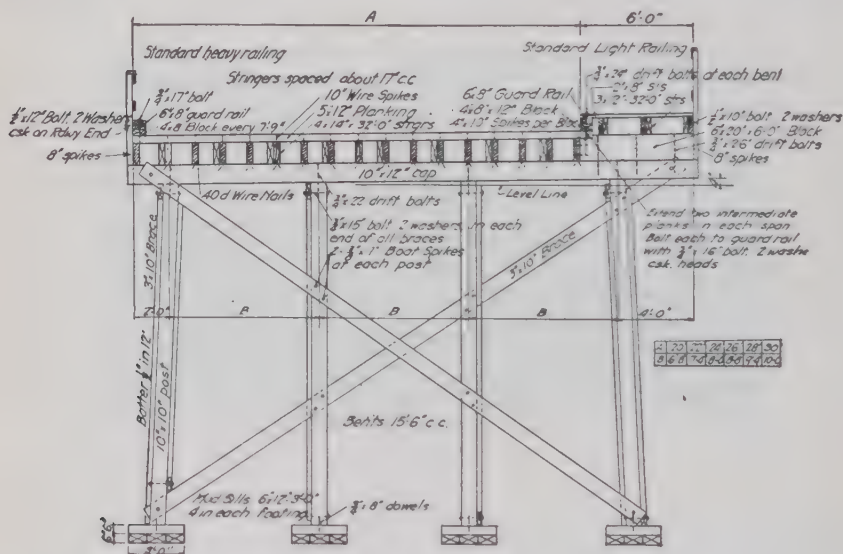 A
6'-0"
Standard heavy railing
Standard Light Railing
Stringers spaced about 17" c.c
¾"x17" bolt
10" Wire Spikes
6"x8" Guard Rail
¾"x24" drift bolts at each bent
½"x12" Bolt. 2 Washers
csk on Rdwy End
6"x8" guard rail
4x8 Block every 7'-9"
5"x12" Planking
4"x14"x32'-0" strgrs
4"x8"x12" Block
4"x10" Spikes per Block
3"x12"-32'-0" strs
½"x10" bolt 2 washers
6"x20"x6'-0" Block
¾"x26" drift bolts
8" spikes
8" spikes
10"x12" cap
40d Wire Nails
¾"x22" drift bolts
Level Line
¾"x15" bolt 2 washers in each
end of all braces
2-⅜"x7" Boat Spikes
at each post
Extend two intermediate
planks in each span
Bolt each to guard rail
with ¾"x16" bolt. 2 washe
csk. heads
3"x10" Brace
3"x10" Brace
2'-0"
B
B
B
4'-0"
A 20 22 24 26 28 30
Batter ½" in 12"
10"x10" post
Bents 15'-6" c.c.
Mud Sills 6"x12"x3'-0"
4 in each footing
¾"x8" dowels
6" 6"
3'-0"